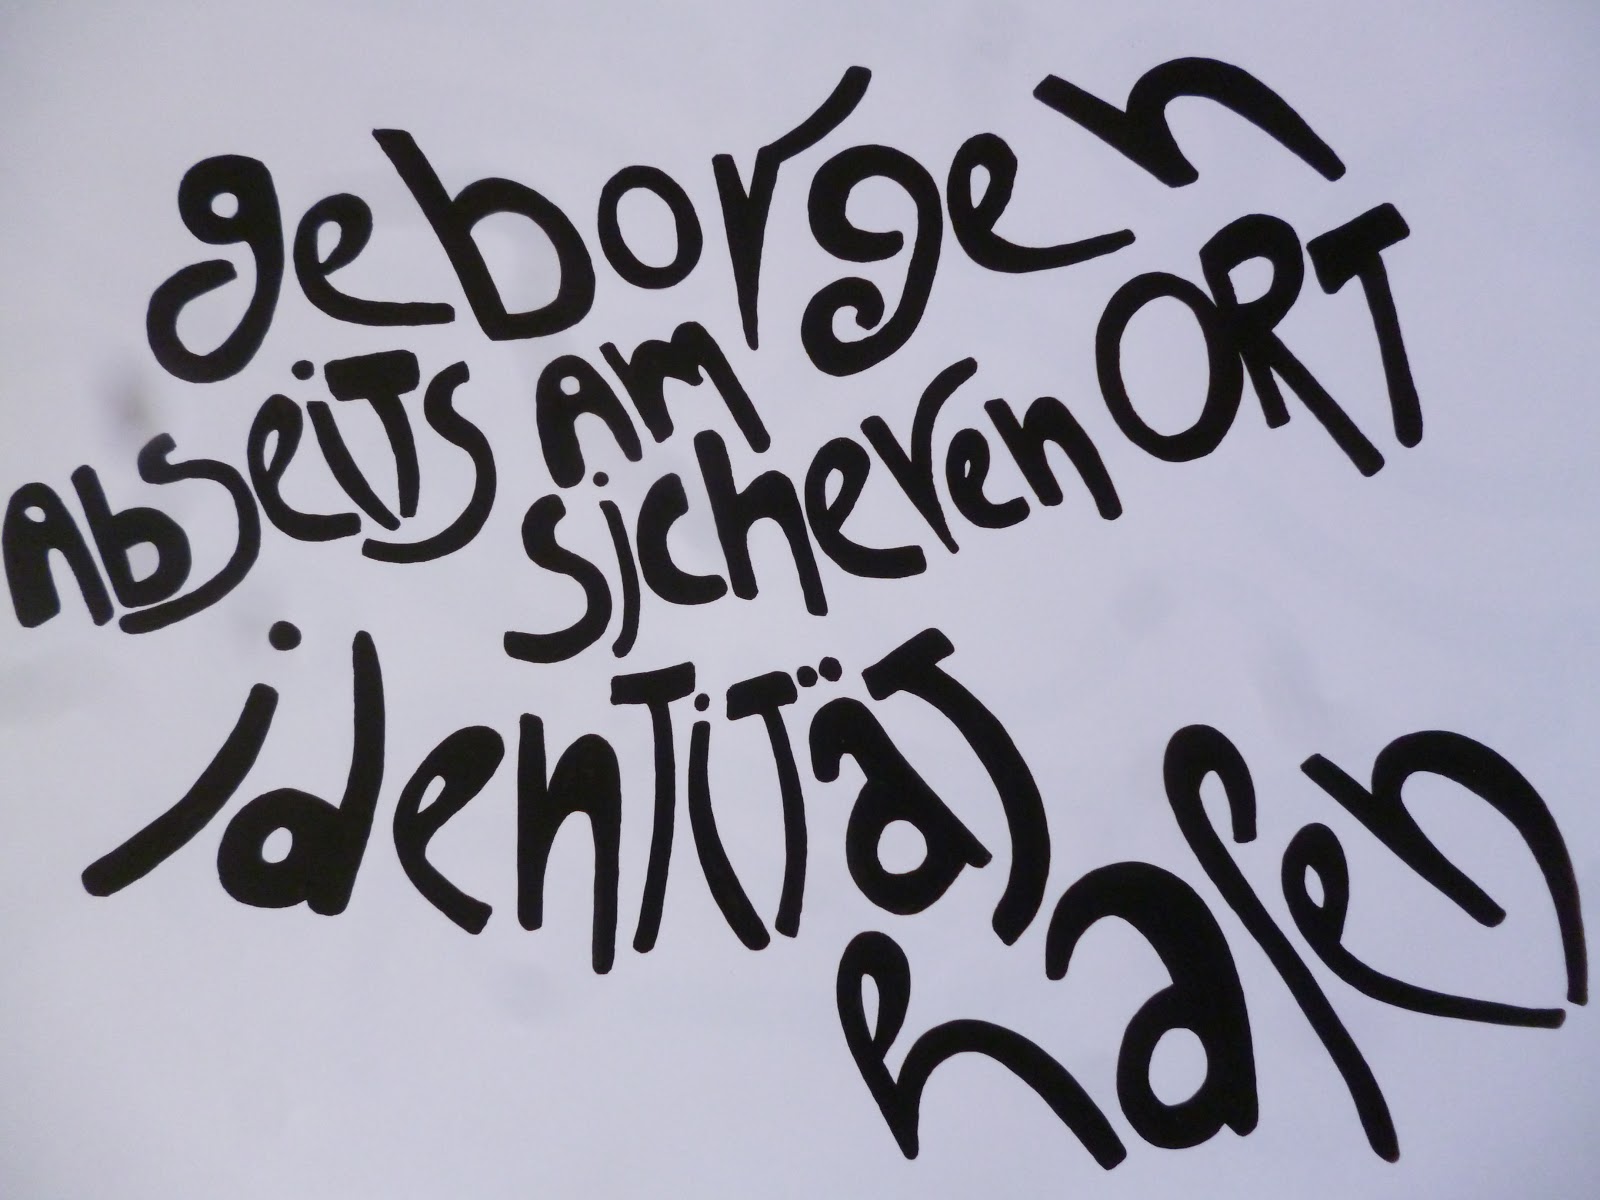 geborgen
Abseits Am
sicheren ORT
identität
hafen